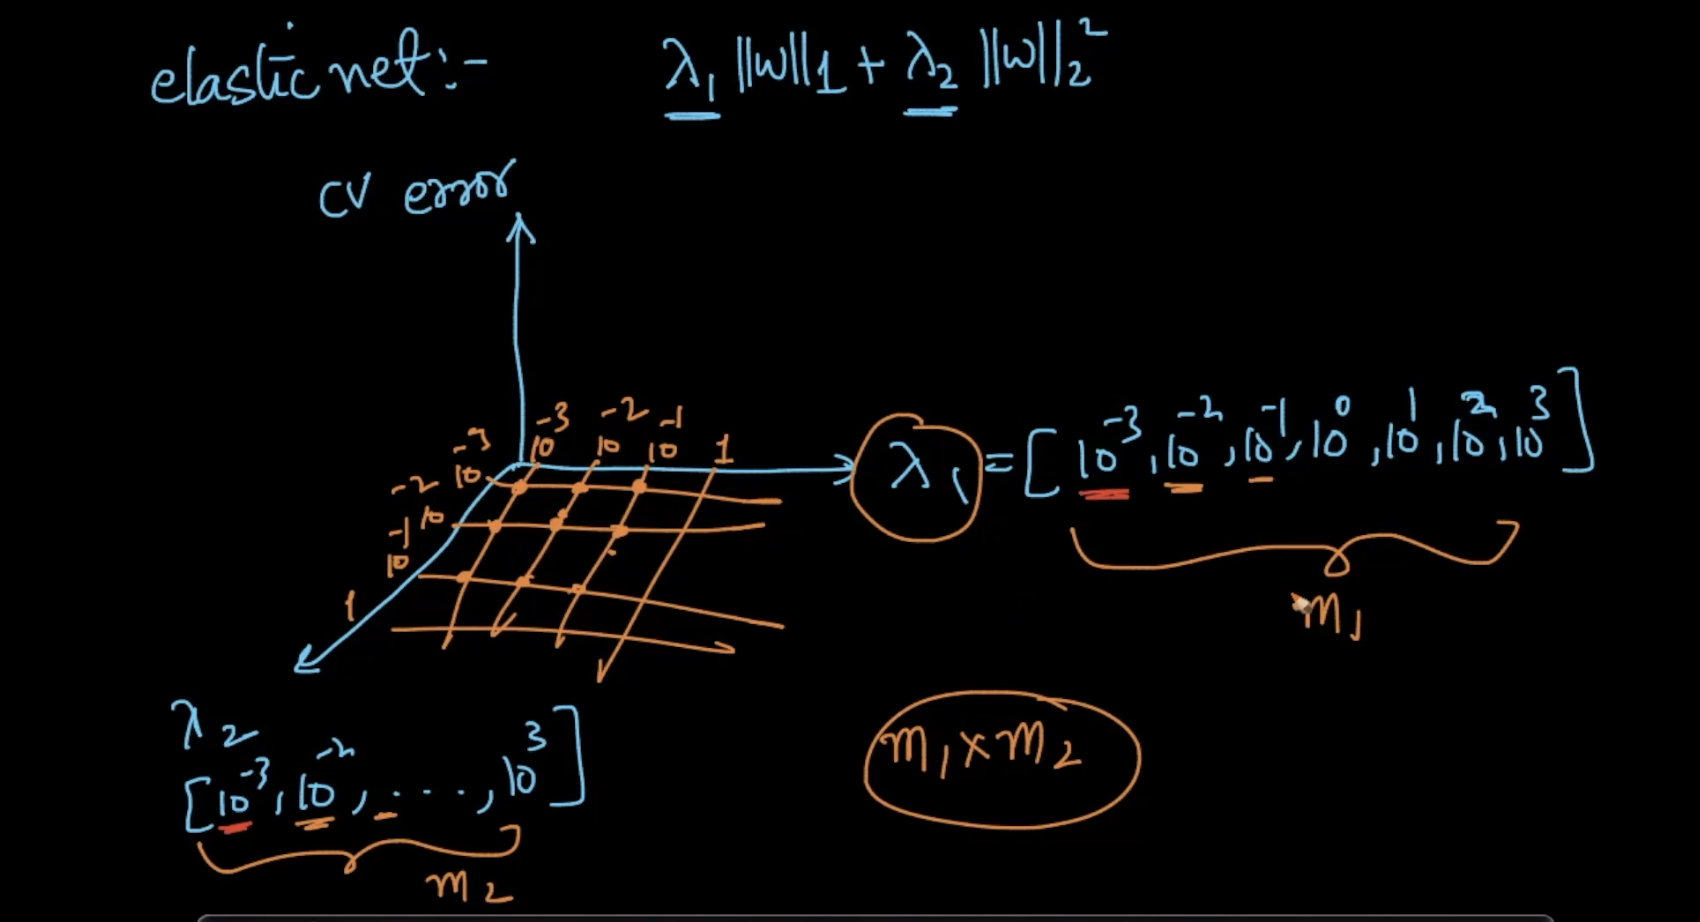 elastic net:- λ₁ ||w||₁ + λ₂ ||w||₂²
CV error
10⁻³ 10⁻² 10⁻¹ 1
10⁻³
10⁻²
10⁻¹
1
λ₁ = [10⁻³, 10⁻², 10⁻¹, 10⁰, 10¹, 10², 10³]
m₁
λ₂
[10⁻³, 10⁻², ...., 10³]
m₂
m₁ x m₂